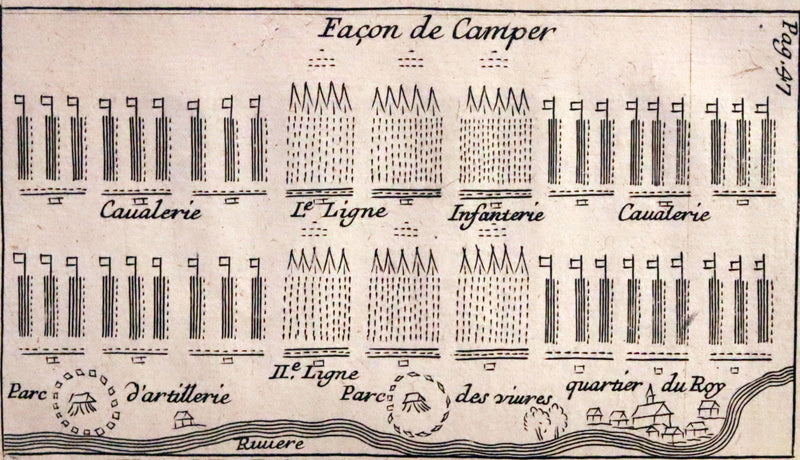 Façon de Camper
Pag. 47
Caualerie
I.e Ligne
Infanterie
Caualerie
II.e Ligne
Parc d'artillerie
Parc des viures
quartier du Roy
Riuiere